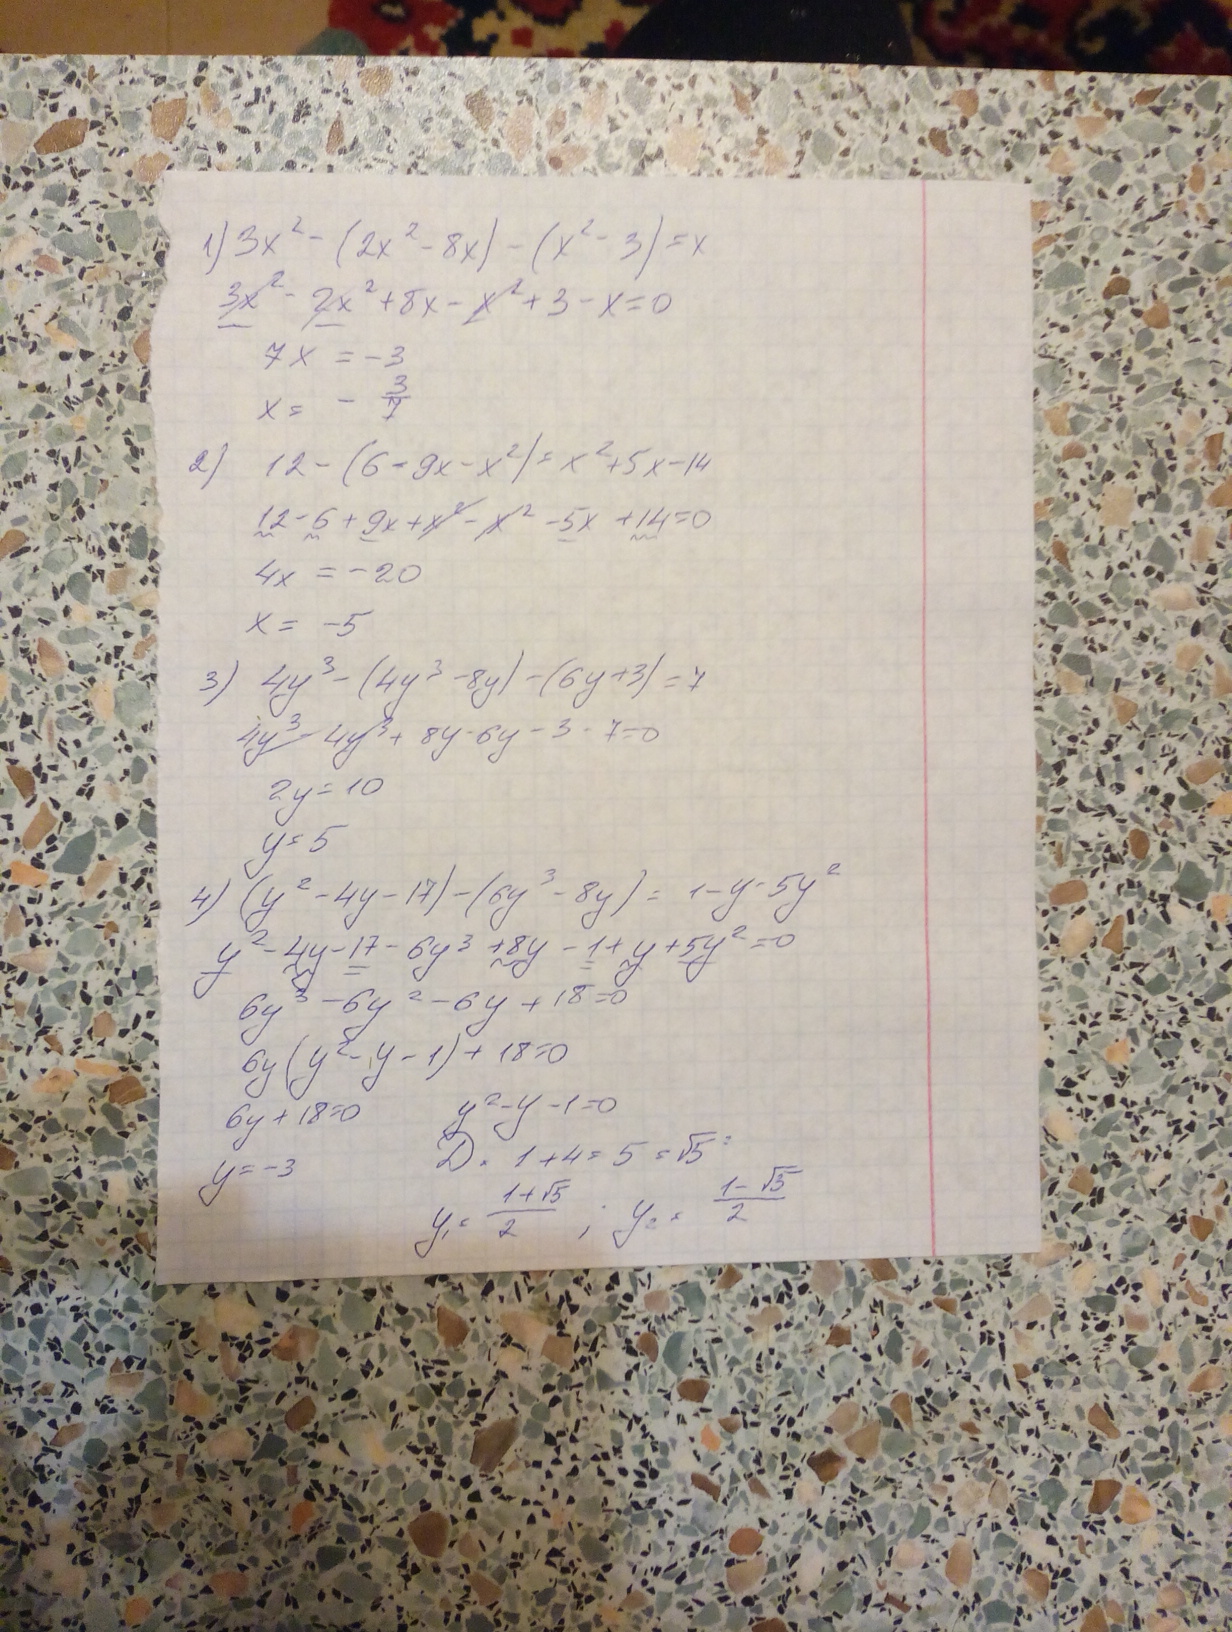 1) 3x² - (2x² - 8x) - (x² - 3) = x
3x² - 2x² + 8x - x² + 3 - x = 0
7x = -3
x = - 3/7
2) 12 - (6 - 9x - x²) = x² + 5x - 14
12 - 6 + 9x + x² - x² - 5x + 14 = 0
4x = -20
x = -5
3) 4y³ - (4y³ - 8y) - (6y + 3) = 7
4y³ - 4y³ + 8y - 6y - 3 - 7 = 0
2y = 10
y = 5
4) (y² - 4y - 17) - (6y³ - 8y) = 1 - y - 5y²
y² - 4y - 17 - 6y³ + 8y - 1 + y + 5y² = 0
6y³ - 6y² - 6y + 18 = 0
6y(y² - y - 1) + 18 = 0
6y + 18 = 0 y² - y - 1 = 0
y = -3 D = 1 + 4 = 5 = √5²
y₁ = (1 + √5)/2 ; y₂ = (1 - √5)/2